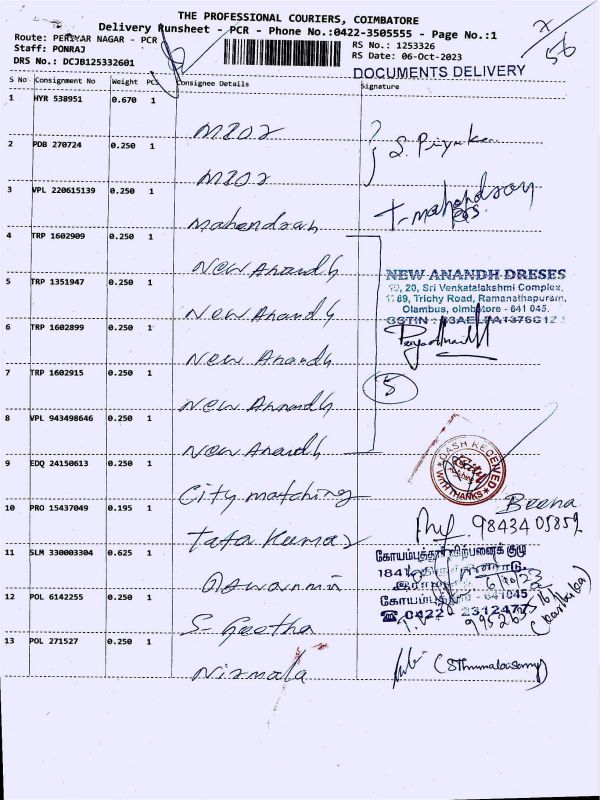 THE PROFESSIONAL COURIERS, COIMBATORE
Delivery Runsheet - PCR - Phone No.:0422-3505555 - Page No.:1
Route: PERIYAR NAGAR - PCR
RS No.: 1253326
Staff: PONRAJ
RS Date: 06-Oct-2023
DRS No.: DCJB125332601
DOCUMENTS DELIVERY
56
S No Consignment No Weight PCS Consignee Details Signature
1 HYR 538951 0.670 1
2 PDB 270724 0.250 1
S. Priyanka
3 VPL 220615139 0.250 1 Mahendran
T-mahendran
4 TRP 1602909 0.250 1 New Anandh
NEW ANANDH DRESES
19, 20, Sri Venkatalakshmi Complex,
Trichy Road, Ramanathapuram,
5 TRP 1351947 0.250 1 New Anandh
641 045.
GSTIN :
6 TRP 1602899 0.250 1 New Anandh
7 TRP 1602915 0.250 1 New Anandh
5
8 VPL 943498646 0.250 1 New Anandh
CASH RECEIVED
City
WITH THANKS
9 EDQ 24150613 0.250 1 City matching
Beena
10 PRO 15437049 0.195 1 Tata Kumar
11 SLM 330003304 0.625 1
கோயம்புத்தூர் விற்பனைக் குழு
1841
641045
0422 2312477
12 POL 6142255 0.250 1 S-Geetha
13 POL 271527 0.250 1 Nirmala